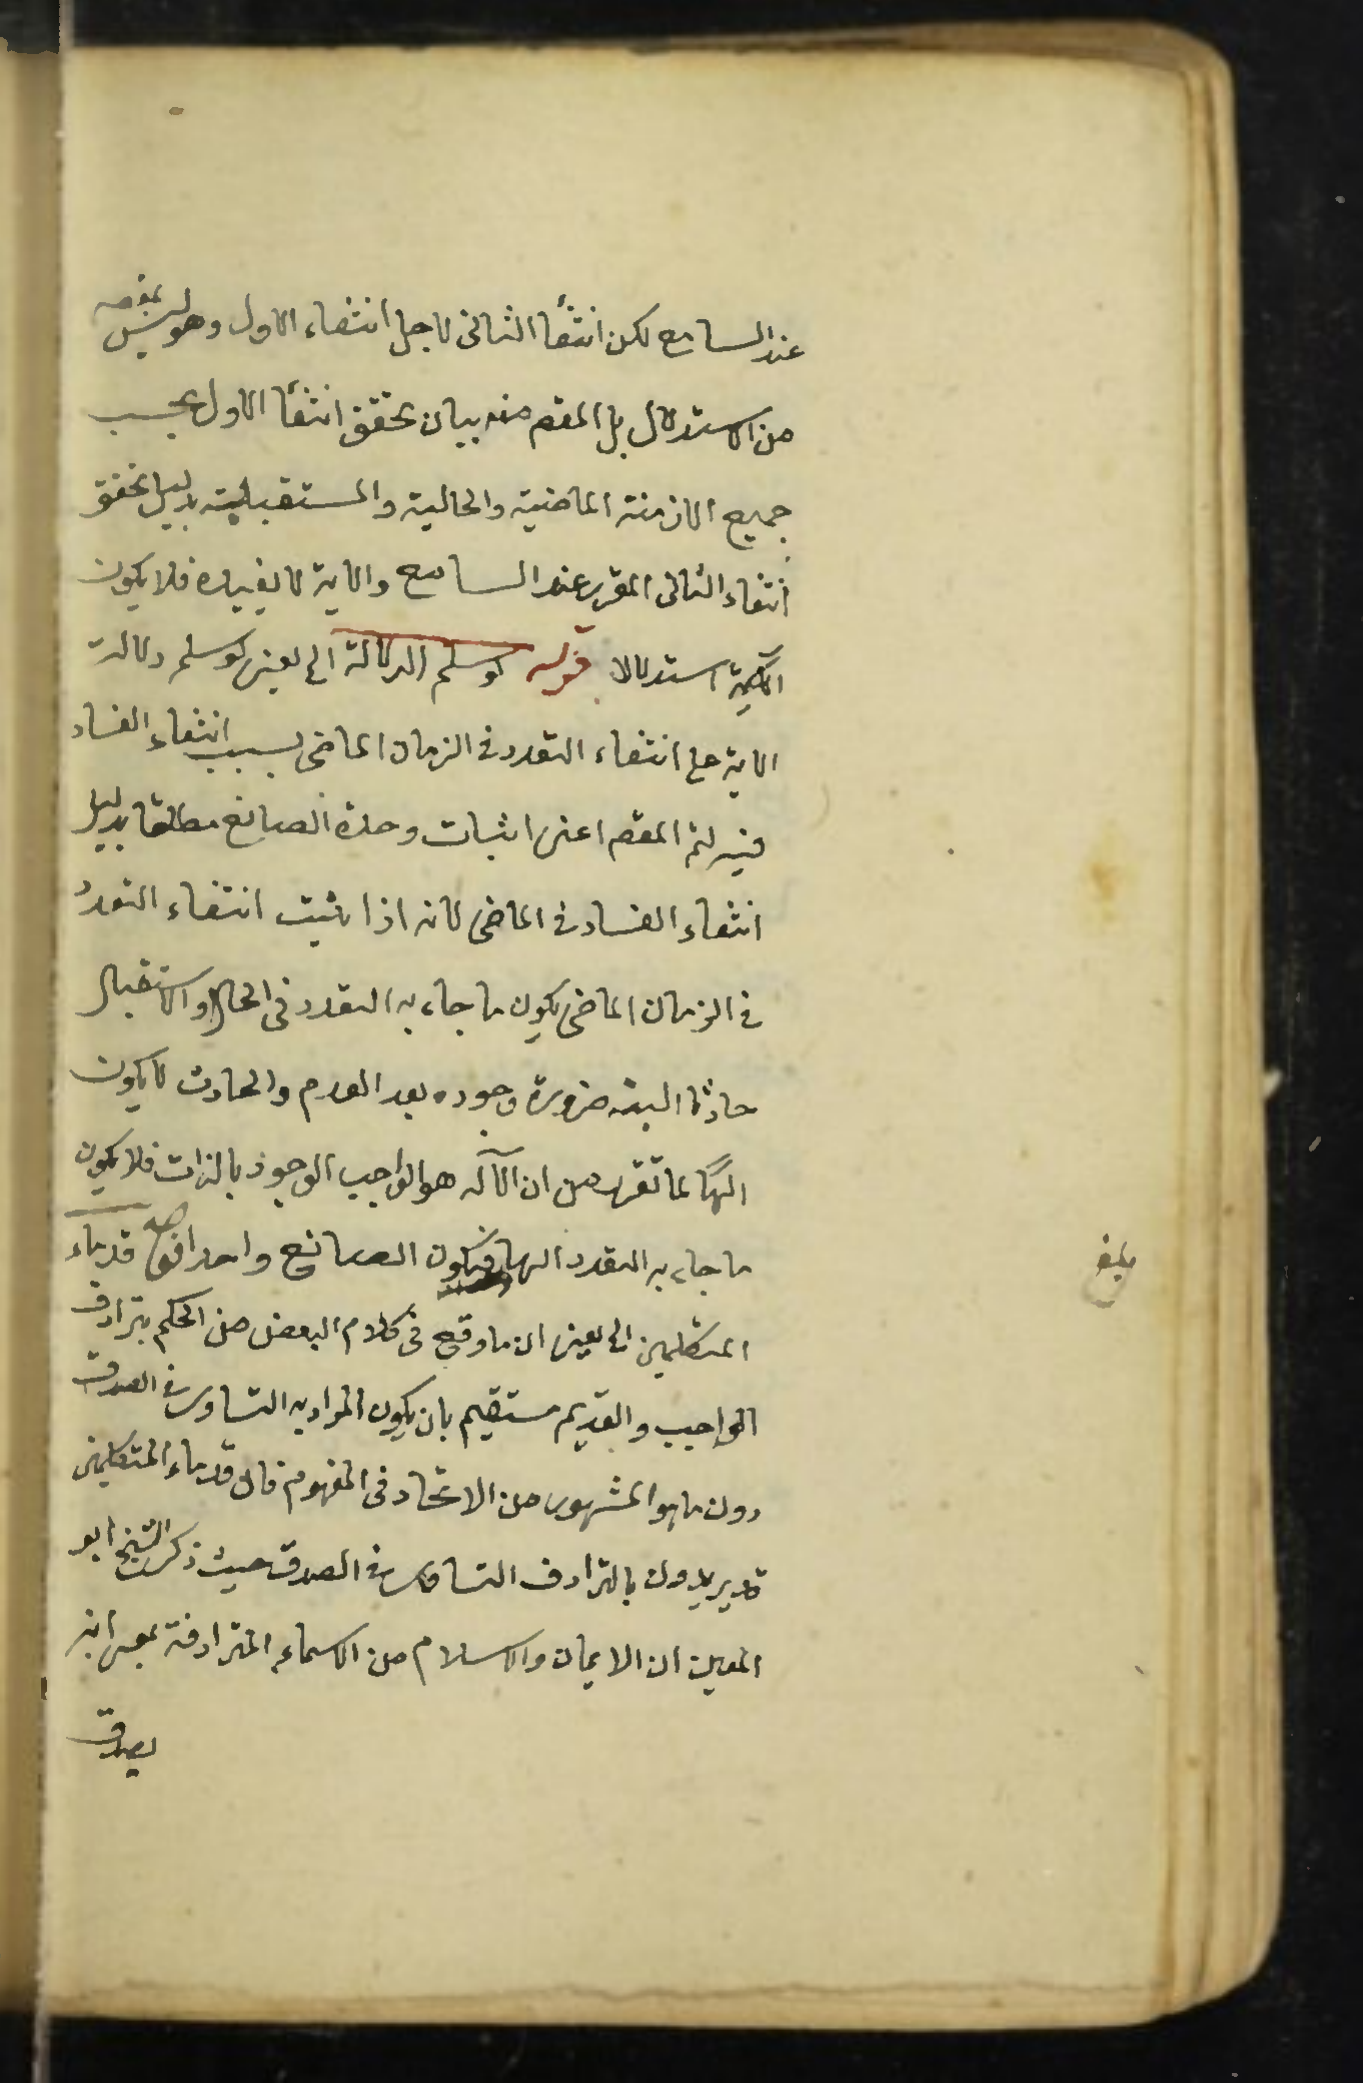 عند السامع لكن انتفأ الثانى لاجل انتفاء الاول وهو ليس بمقصه
من الاستدلال بل المقصم منه بيان تحقق انتفأ الاول بحسب
جميع الازمنة الماضية والحالية والمستقبلية بدليل تحقق
انتفاء الثانى المقرر عند السامع والاية لا يفيده فلا يكون
الآية استدلالا قوله لو سلم الدلالة الى يعنى لو سلم دلالة
الاية على انتفاء التعدد فى الزمان الماضى بسبب انتفاء الفساد
فيه لتم المقصم اعنى اثبات وحدة الصانع مطلقا بدليل
انتفاء الفساد فى الماضى لانه اذا يثبت انتفاء التعدد
فى الزمان الماضى يكون ما جاء به التعدد فى الحال والاستقبال
حادثا البتة ضرورة وجوده بعد العدم والحادث لا يكون
الها لما تقرر من ان الآله هو الواجب الوجود بالذات فلا يكون
ما جاء به التعدد الها فيكون الصانع واحدا قدماء
المتكلمين الى يعنى ان ما وقع فى كلام البعض من الحكم بترادف
الواجب والقديم مستقيم بان يكون المراد به التساوى فى الصدق
دون ما هو المشهور من الاتحاد فى المفهوم فان قدماء المتكلمين
قد يريدون بالترادف التساوى فى الصدق حيث ذكر الشيخ ابو
المعين ان الايمان والاسلام من الاسماء المترادفة بمعنى انه
يصدق
بلغ